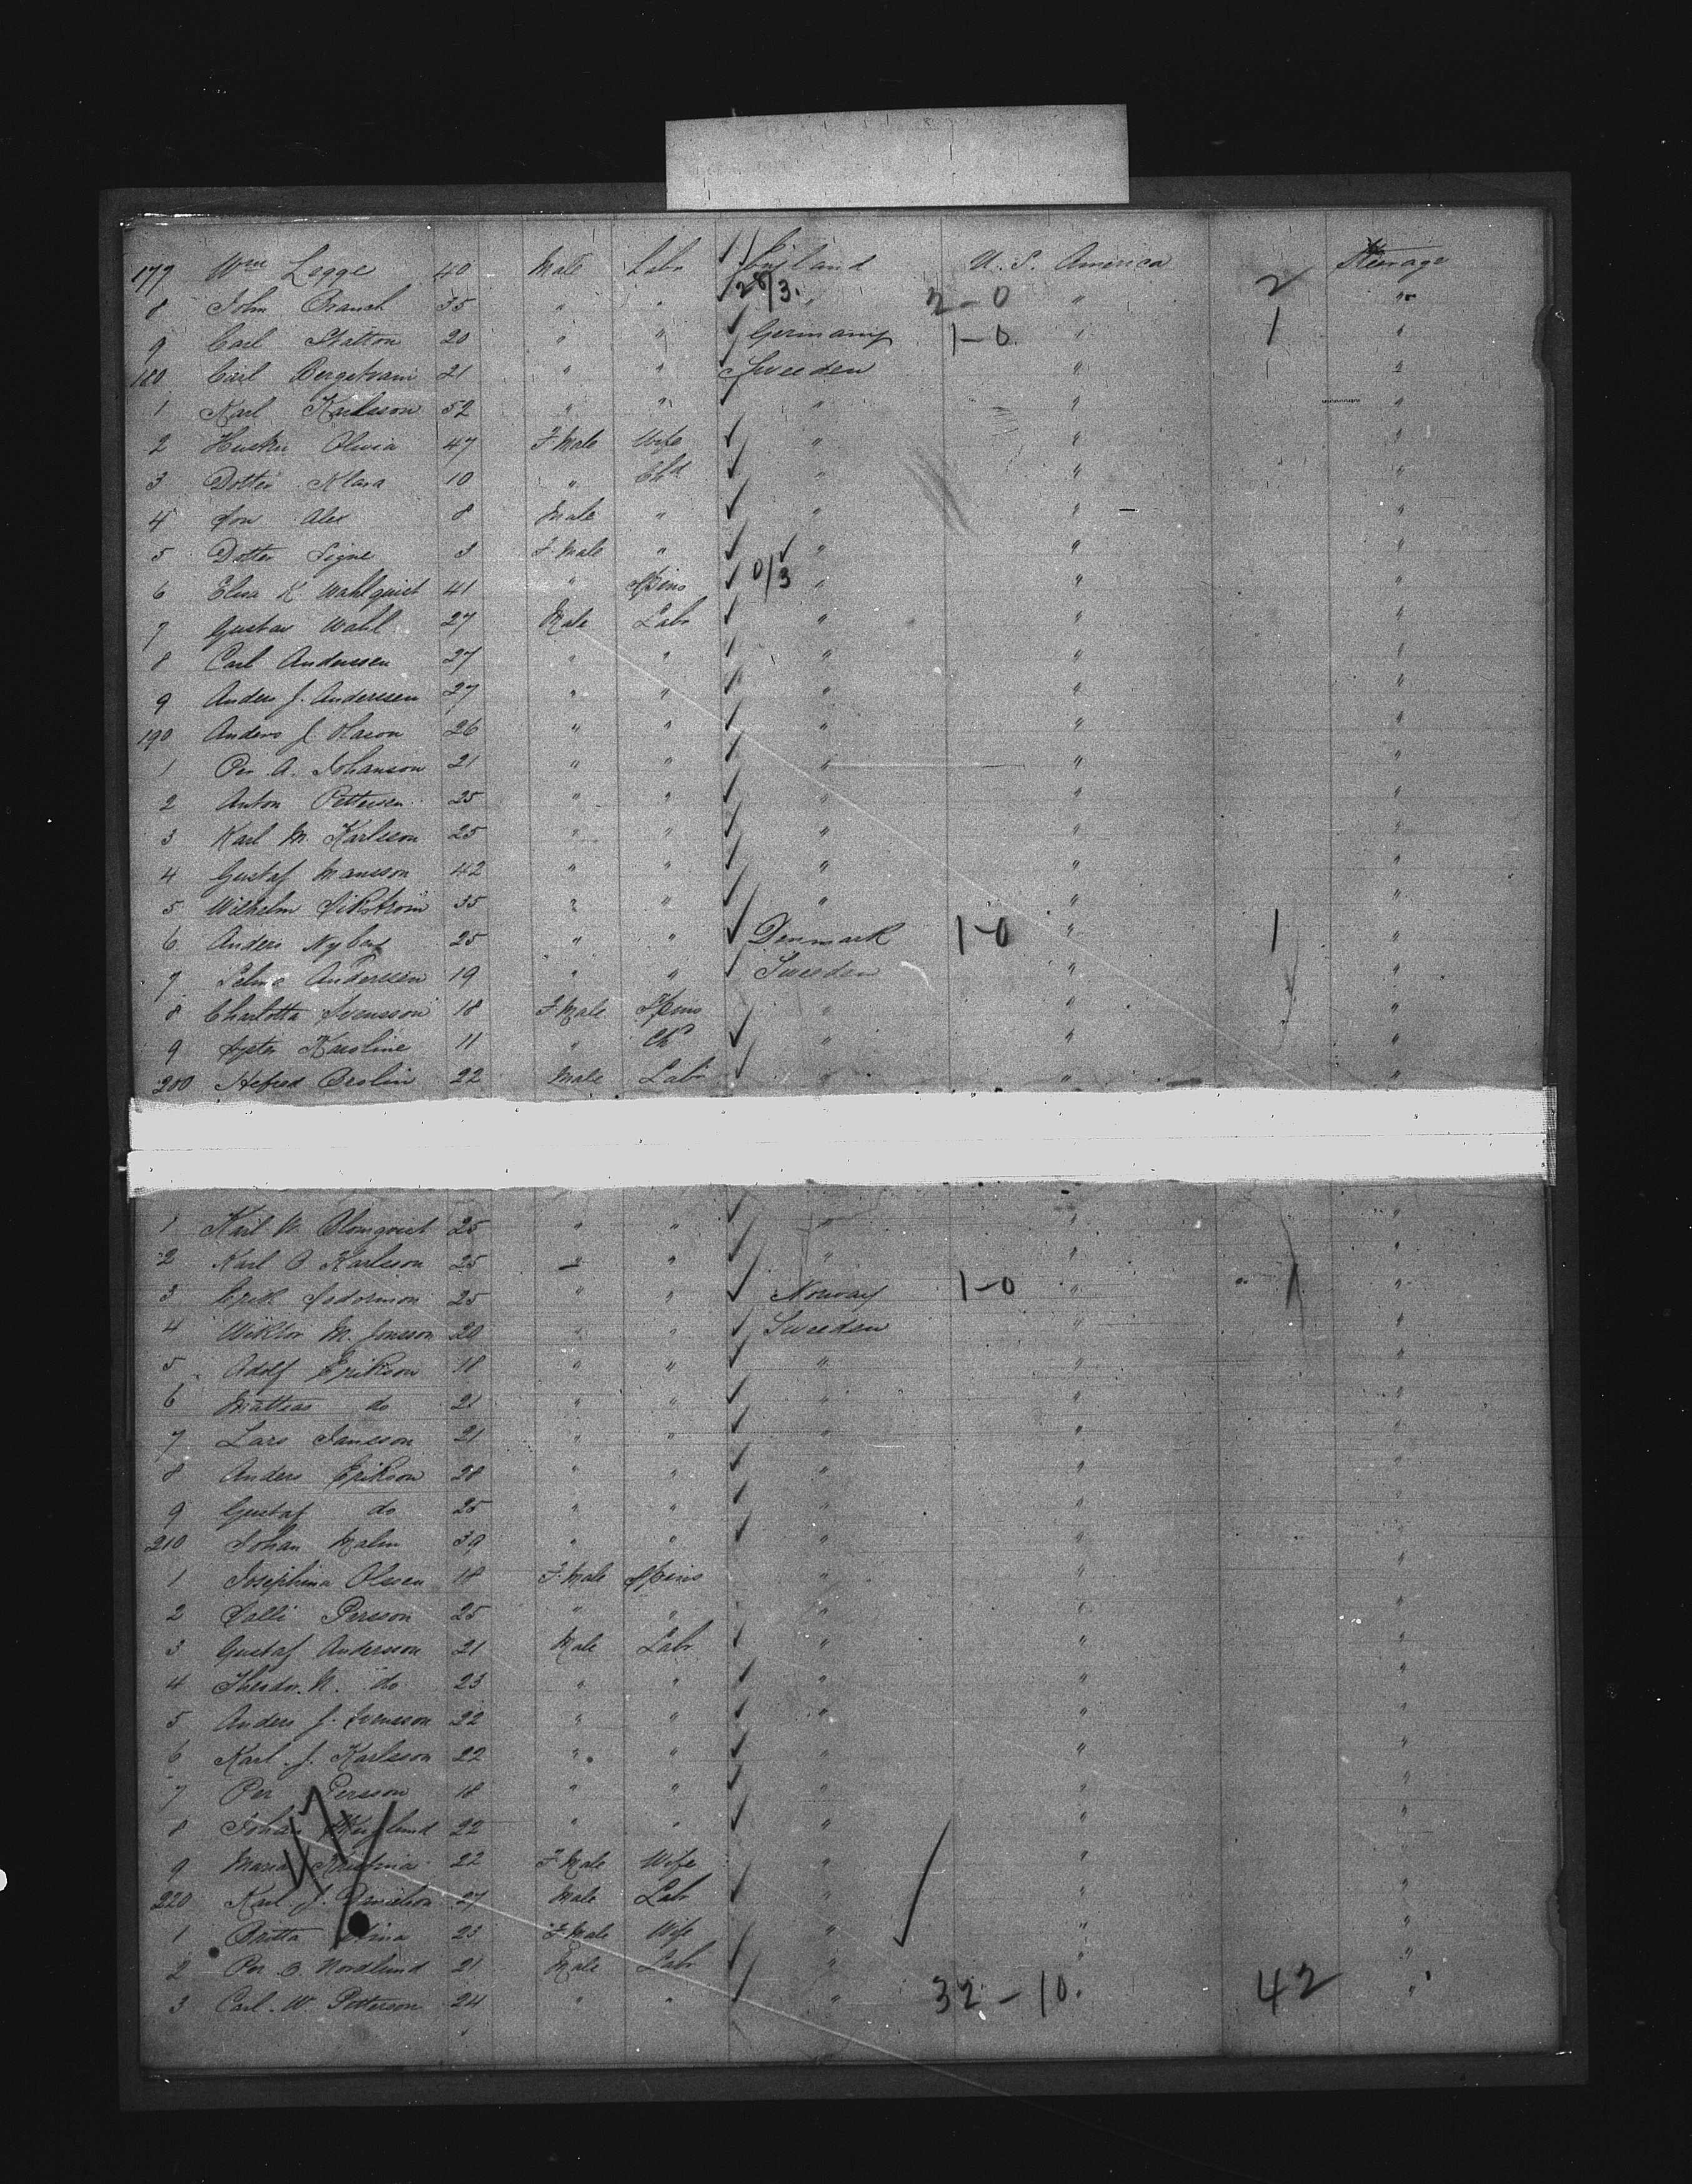 177 Wm Legge 40 Male Labr England U. S. America Steerage
28/3.
8 John Branch 35 " " " 2-0 " 2 "
9 Carl Statton 20 " " Germany 1-0 " 1 "
180 Carl Bergstram 21 " " Sweeden " "
1 Karl Karlsson 52 " " " " "
2 Hustru Olivia 47 F Male Wife " " "
3 Dotter Klara 10 " Chd " " "
4 Son Alex 8 Male " " " "
5 Dotter Signe 3 F Male " " " "
6 Elisa K Wahlquist 41 " Spins 0/3 " " "
7 Gustav Wahl 27 Male Labr " " "
8 Carl Anderssen 27 " " " " "
9 Anders J. Anderssen 27 " " " " "
190 Anders J Olason 26 " " " " "
1 Per A. Johanson 21 " " " " "
2 Anton Pettersen 25 " " " " "
3 Karl M. Karlsson 25 " " " " "
4 Gustaf Mansson 42 " " " " "
5 Wilhelm Sikström 35 " " " " "
6 Anders Nyberg 25 " " Denmark 1-0 " 1 "
7 Selma Anderssen 19 " " Sweeden " "
8 Charlotta Svensson 18 F Male Spins " " "
9 Syster Karoline 11 " Ch " " "
200 Orslin 22 Male Labr " " "
1 Karl W. Blomqvist 25 " " " " "
2 Karl O. Karlsson 25 " " " " "
3 Erik 25 " " Norway 1-0 " 1 "
4 Wiktor M. Jonsson 20 " " Sweeden " "
5 Adolf Erikson 18 " " " " "
6 Mattias do 21 " " " " "
7 Lars Jansson 21 " " " " "
8 Anders Erikson 28 " " " " "
9 Gustaf do 25 " " " " "
210 Johan Malm 39 " " " " "
1 Josephina Olssen 18 F Male Spins " " "
2 Salli Persson 25 " " " " "
3 Gustaf Andersson 21 Male Labr " " "
4 Theodor. N. do 23 " " " " "
5 Anders J. Svensson 22 " " " " "
6 Karl J. Karlsson 22 " " " " "
7 Per Persson 18 " " " " "
8 Johan 22 " " " " "
9 Maria Kristina 22 F Male Wife " " "
220 Karl J. Danielson 27 Male Labr " " "
1 Britta Stina 23 F Male Wife " " "
2 Per O Nordlund 21 Male Labr " " "
3 Carl. W. Petterson 24 " " " 32-10. 42 "